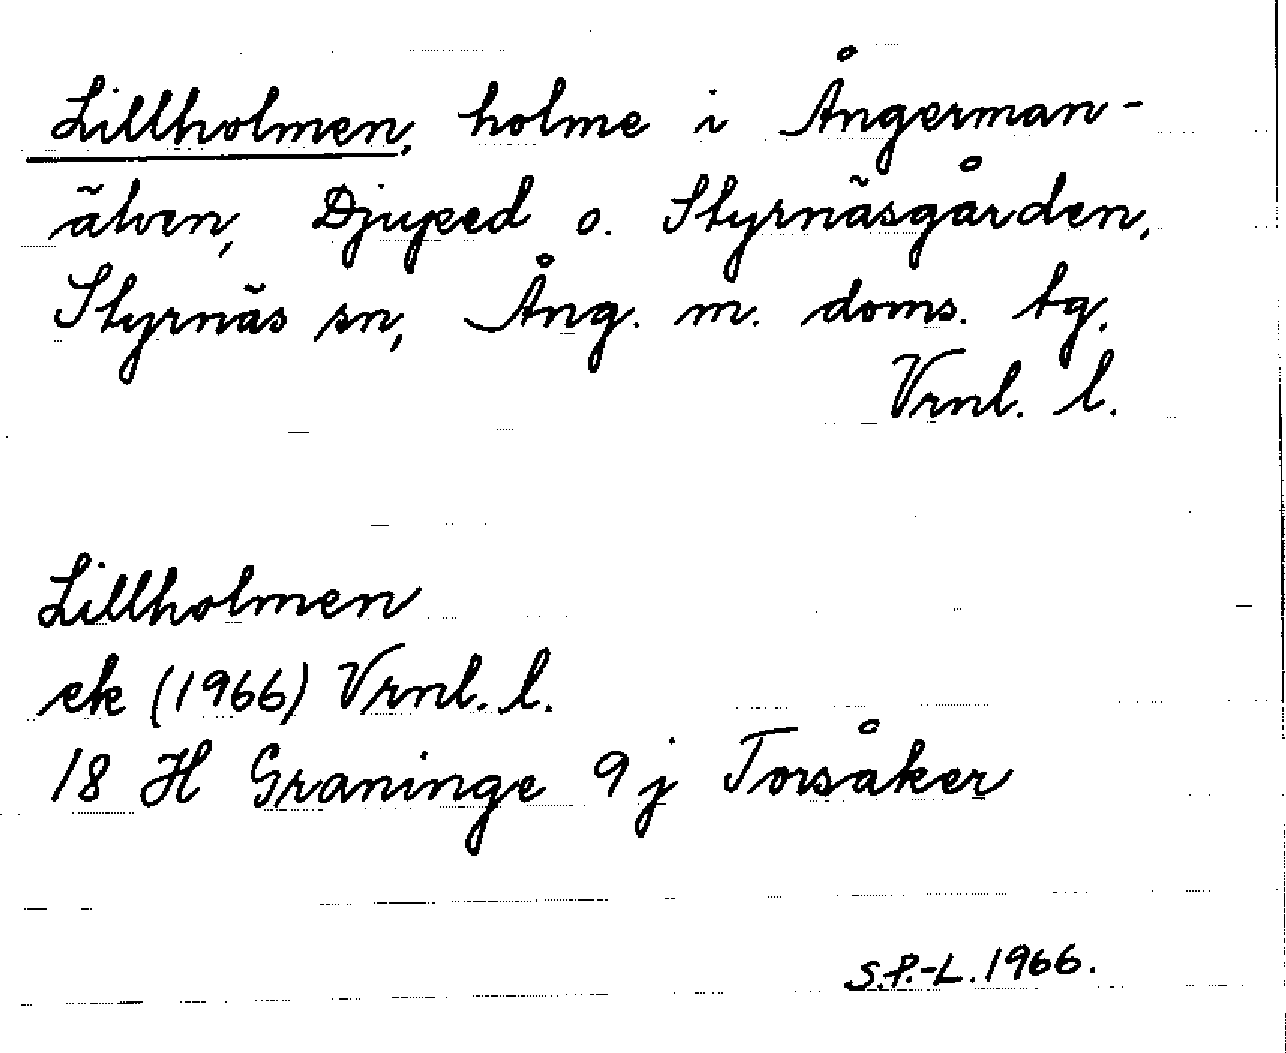 Lillholmen, holme i Ångerman-
älven, Djuped o. Styrnäsgården,
Styrnäs sn, Ång. m. doms. tg.
Vrnl. l.
Lillholmen
ek (1966) Vrnl. l.
18 H Graninge 9 j Torsåker
S.P.-L. 1966.